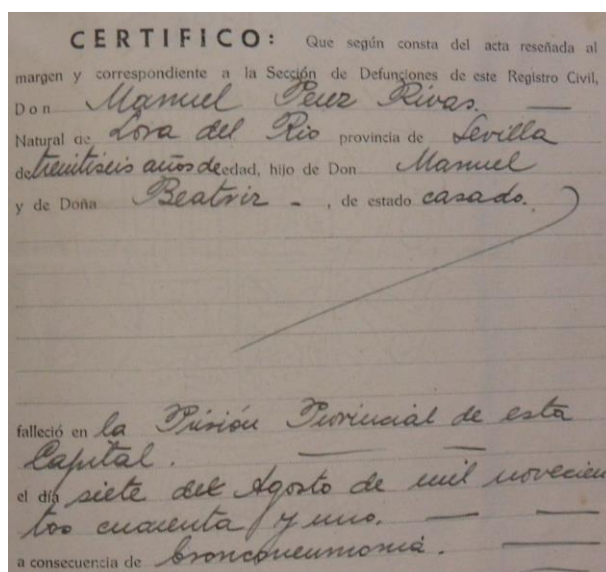 CERTIFICO: Que según consta del acta reseñada al
margen y correspondiente a la Sección de Defunciones de este Registro Civil,
Don Manuel Perez Rivas.
Natural de Lora del Rio provincia de Sevilla
de treintiseis años de edad, hijo de Don Manuel
y de Doña Beatriz - , de estado casado.
falleció en la Prisión Provincial de esta
Capital.
el día siete del Agosto de mil novecien
tos cuarenta y uno.
a consecuencia de bronconeumonia.